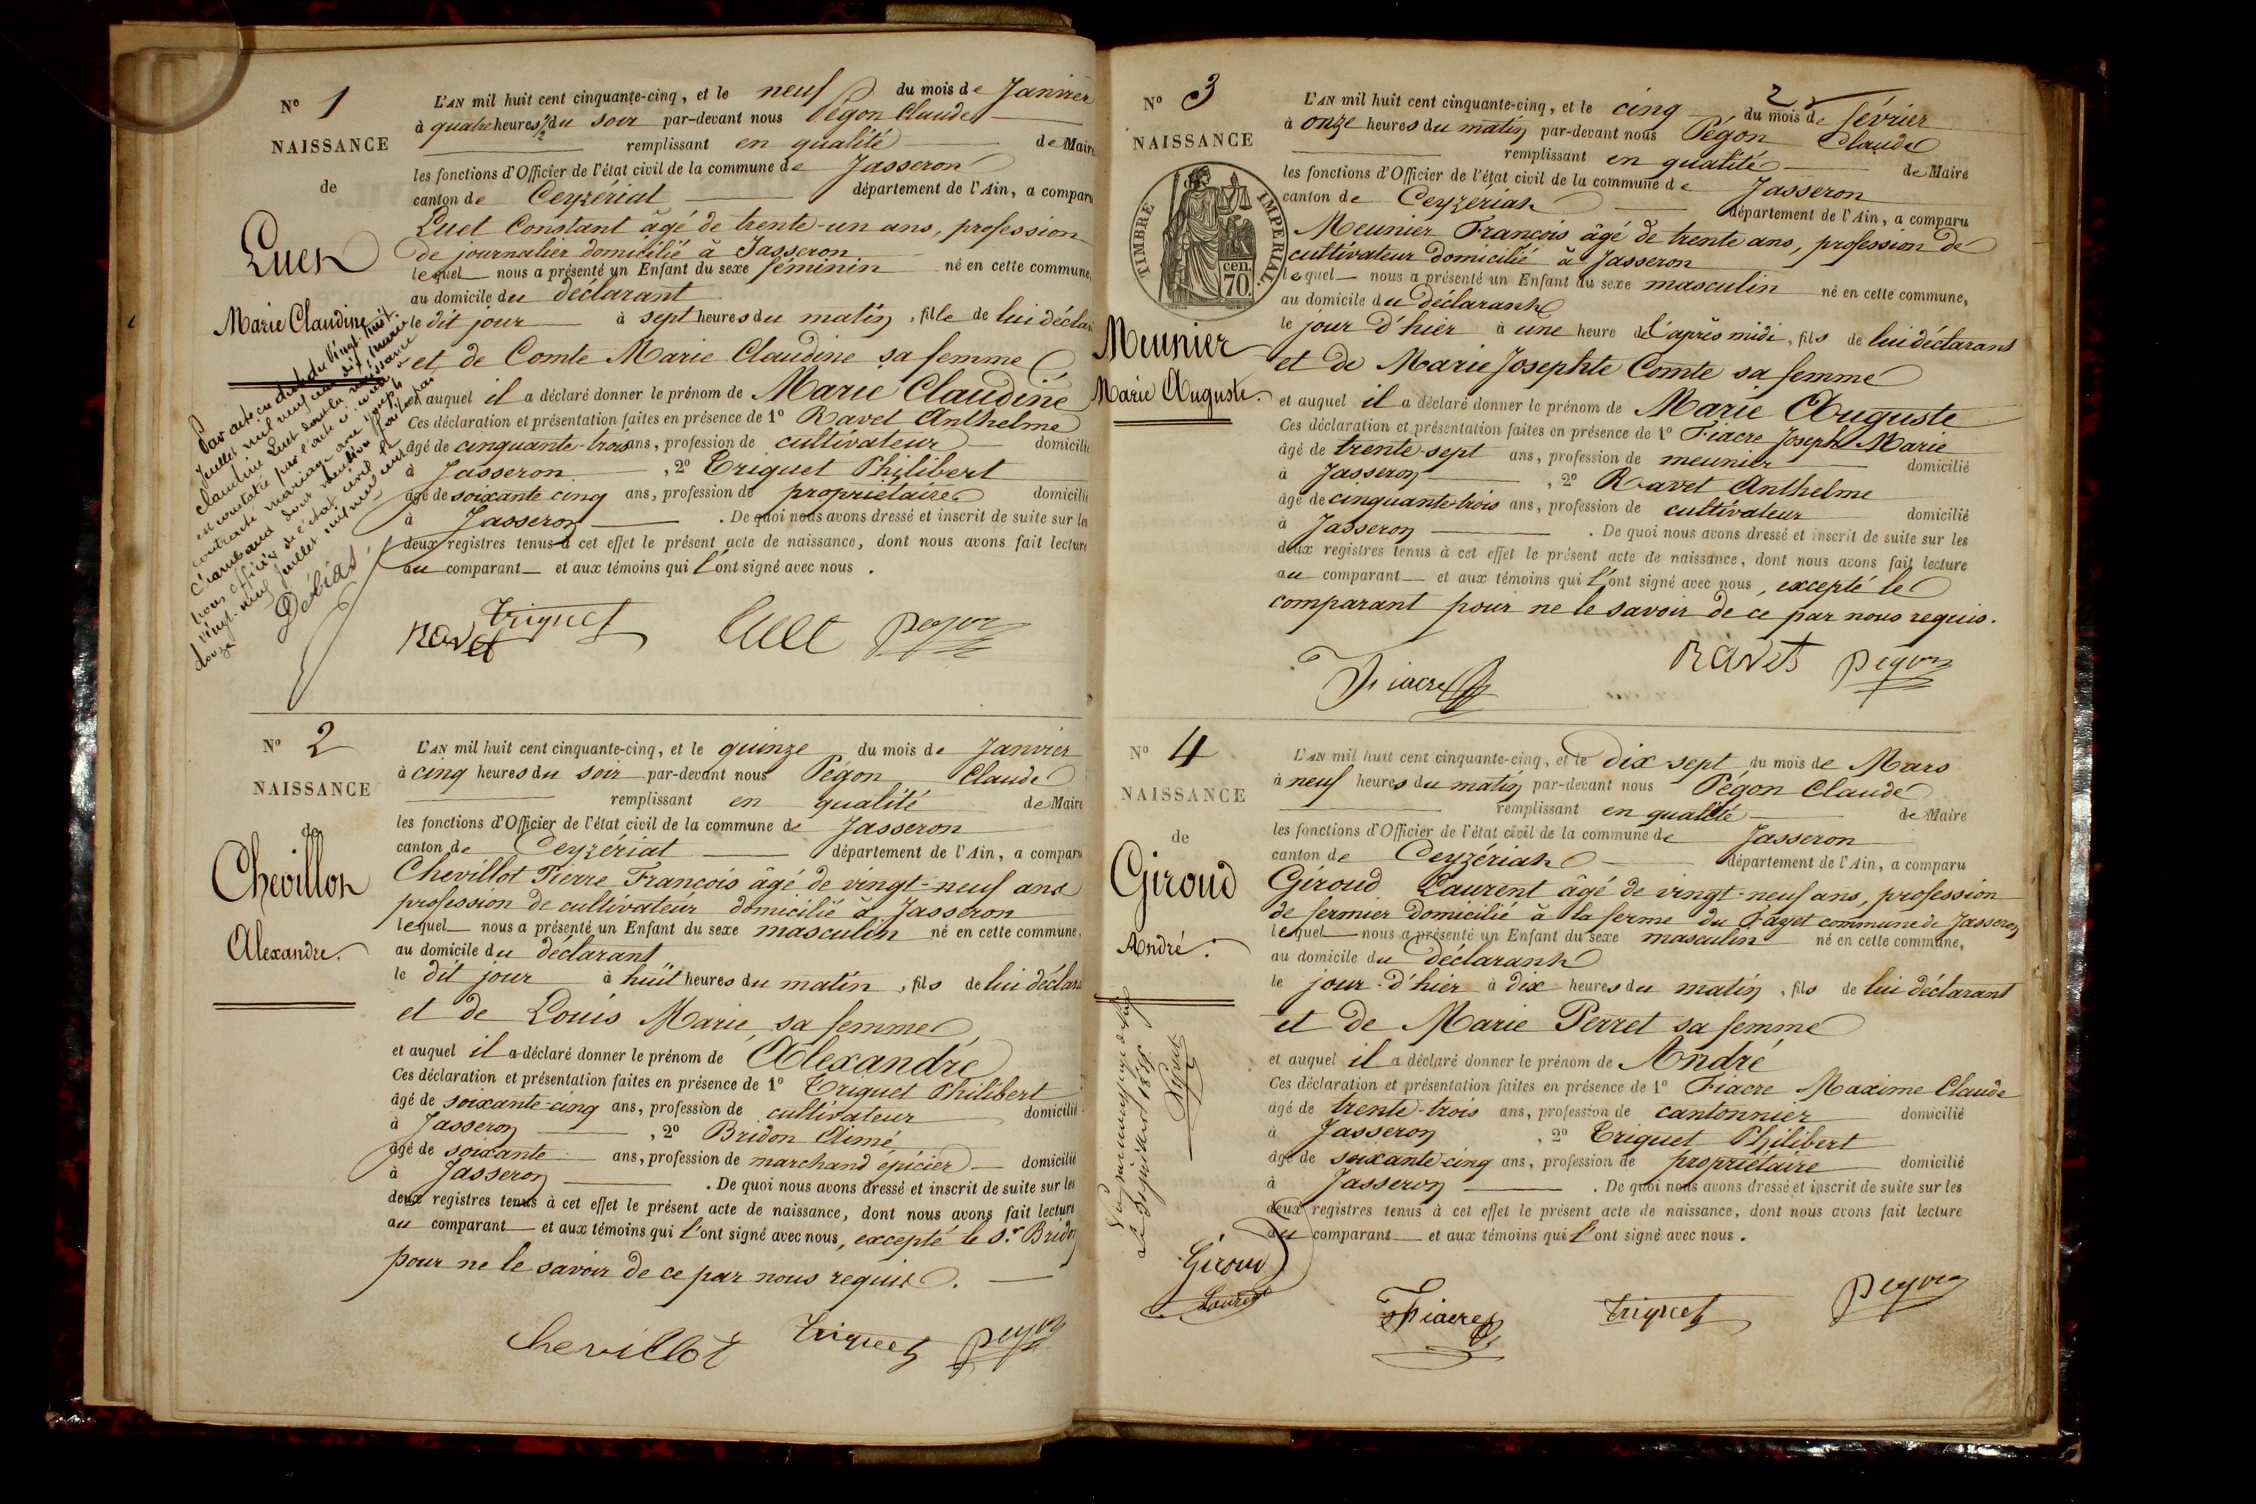 N° 1
NAISSANCE
de
Luet
Marie Claudine
L'AN mil huit cent cinquante-cinq, et le neuf du mois de Janvier
à quatre heures 1/2 du soir par-devant nous Pégon Claude
remplissant en qualité de Maire
les fonctions d'Officier de l'état civil de la commune de Jasseron
canton de Ceyzériat département de l'Ain, a comparu
Luet Constant âgé de trente-un ans, profession
de journalier domicilié à Jasseron
lequel nous a présenté un Enfant du sexe féminin né en cette commune,
au domicile du déclarant
le dit jour à sept heures du matin, fille de lui déclar
et de Comte Marie Claudine sa femme
et auquel il a déclaré donner le prénom de Marie Claudine
Ces déclaration et présentation faites en présence de 1° Ravet Anthelme
âgé de cinquante-trois ans, profession de cultivateur domicilié
à Jasseron, 2° Triquet Philibert
âgé de soixante cinq ans, profession de propriétaire domicilié
à Jasseron. De quoi nous avons dressé et inscrit de suite sur les
deux registres tenus à cet effet le présent acte de naissance, dont nous avons fait lecture
au comparant et aux témoins qui l'ont signé avec nous.
Par acte en date du vingt-huit
Juillet mil neuf cent dix Marie
Claudine Luet dont la naissance
est constatée par l'acte ci-contre a
contracté mariage avec Joseph
Charnbaud dont mention faite par
nous officier de l'état civil le
vingt-neuf Juillet mil neuf cent
douze
Débias
Ravet Triquet Luet Pegon
N° 2
NAISSANCE
de
Chevillot
Alexandre.
L'AN mil huit cent cinquante-cinq, et le quinze du mois de Janvier
à cinq heures du soir par-devant nous Pégon Claude
remplissant en qualité de Maire
les fonctions d'Officier de l'état civil de la commune de Jasseron
canton de Ceyzériat département de l'Ain, a comparu
Chevillot Pierre François âgé de vingt-neuf ans
profession de cultivateur domicilié à Jasseron
lequel nous a présenté un Enfant du sexe masculin né en cette commune,
au domicile du déclarant
le dit jour à huit heures du matin, fils de lui déclara
et de Louis Marie sa femme
et auquel il a déclaré donner le prénom de Alexandre
Ces déclaration et présentation faites en présence de 1° Triquet Philibert
âgé de soixante-cinq ans, profession de cultivateur domicilié
à Jasseron, 2° Bridon Aimé
âgé de soixante ans, profession de marchand épicier domicilié
à Jasseron. De quoi nous avons dressé et inscrit de suite sur les
deux registres tenus à cet effet le présent acte de naissance, dont nous avons fait lecture
au comparant et aux témoins qui l'ont signé avec nous, excepté le Sr Bridon
pour ne le savoir de ce par nous requis.
Chevillot Triquet Pegon
2
N° 3
NAISSANCE
TIMBRE IMPERIAL.
cen.
70.
Meunier
Marie Auguste.
L'AN mil huit cent cinquante-cinq, et le cinq du mois de février
à onze heures du matin par-devant nous Pégon Claude
remplissant en qualité de Maire
les fonctions d'Officier de l'état civil de la commune de Jasseron
canton de Ceyzériat département de l'Ain, a comparu
Meunier François âgé de trente ans, profession de
cultivateur domicilié à Jasseron
lequel nous a présenté un Enfant du sexe masculin né en cette commune,
au domicile du déclarant
le jour d'hier à une heure de l'après midi, fils de lui déclarant
et de Marie Josephte Comte sa femme
et auquel il a déclaré donner le prénom de Marie Auguste
Ces déclaration et présentation faites en présence de 1° Fiacre Joseph Marie
âgé de trente-sept ans, profession de meunier domicilié
à Jasseron, 2° Ravet Anthelme
âgé de cinquante-trois ans, profession de cultivateur domicilié
à Jasseron. De quoi nous avons dressé et inscrit de suite sur les
deux registres tenus à cet effet le présent acte de naissance, dont nous avons fait lecture
au comparant et aux témoins qui l'ont signé avec nous, excepté le
comparant pour ne le savoir de ce par nous requis.
Fiacre Ravet Pegon
N° 4
NAISSANCE
de
Giroud
André.
L'AN mil huit cent cinquante-cinq, et le Dix sept du mois de Mars
à neuf heures du matin par-devant nous Pégon Claude
remplissant en qualité de Maire
les fonctions d'Officier de l'état civil de la commune de Jasseron
canton de Ceyzériat département de l'Ain, a comparu
Giroud Laurent âgé de vingt-neuf ans, profession
de fermier domicilié à la ferme du Fayet commune de Jasseron
lequel nous a présenté un Enfant du sexe masculin né en cette commune,
au domicile du déclarant
le jour d'hier à dix heures du matin, fils de lui déclarant
et de Marie Perret sa femme
et auquel il a déclaré donner le prénom de André
Ces déclaration et présentation faites en présence de 1° Fiacre Maxime Claude
âgé de trente-trois ans, profession de cantonnier domicilié
à Jasseron, 2° Triquet Philibert
âgé de soixante-cinq ans, profession de propriétaire domicilié
à Jasseron. De quoi nous avons dressé et inscrit de suite sur les
deux registres tenus à cet effet le présent acte de naissance, dont nous avons fait lecture
au comparant et aux témoins qui l'ont signé avec nous.
Giroud
Laurent
Fiacre Triquet Pegon